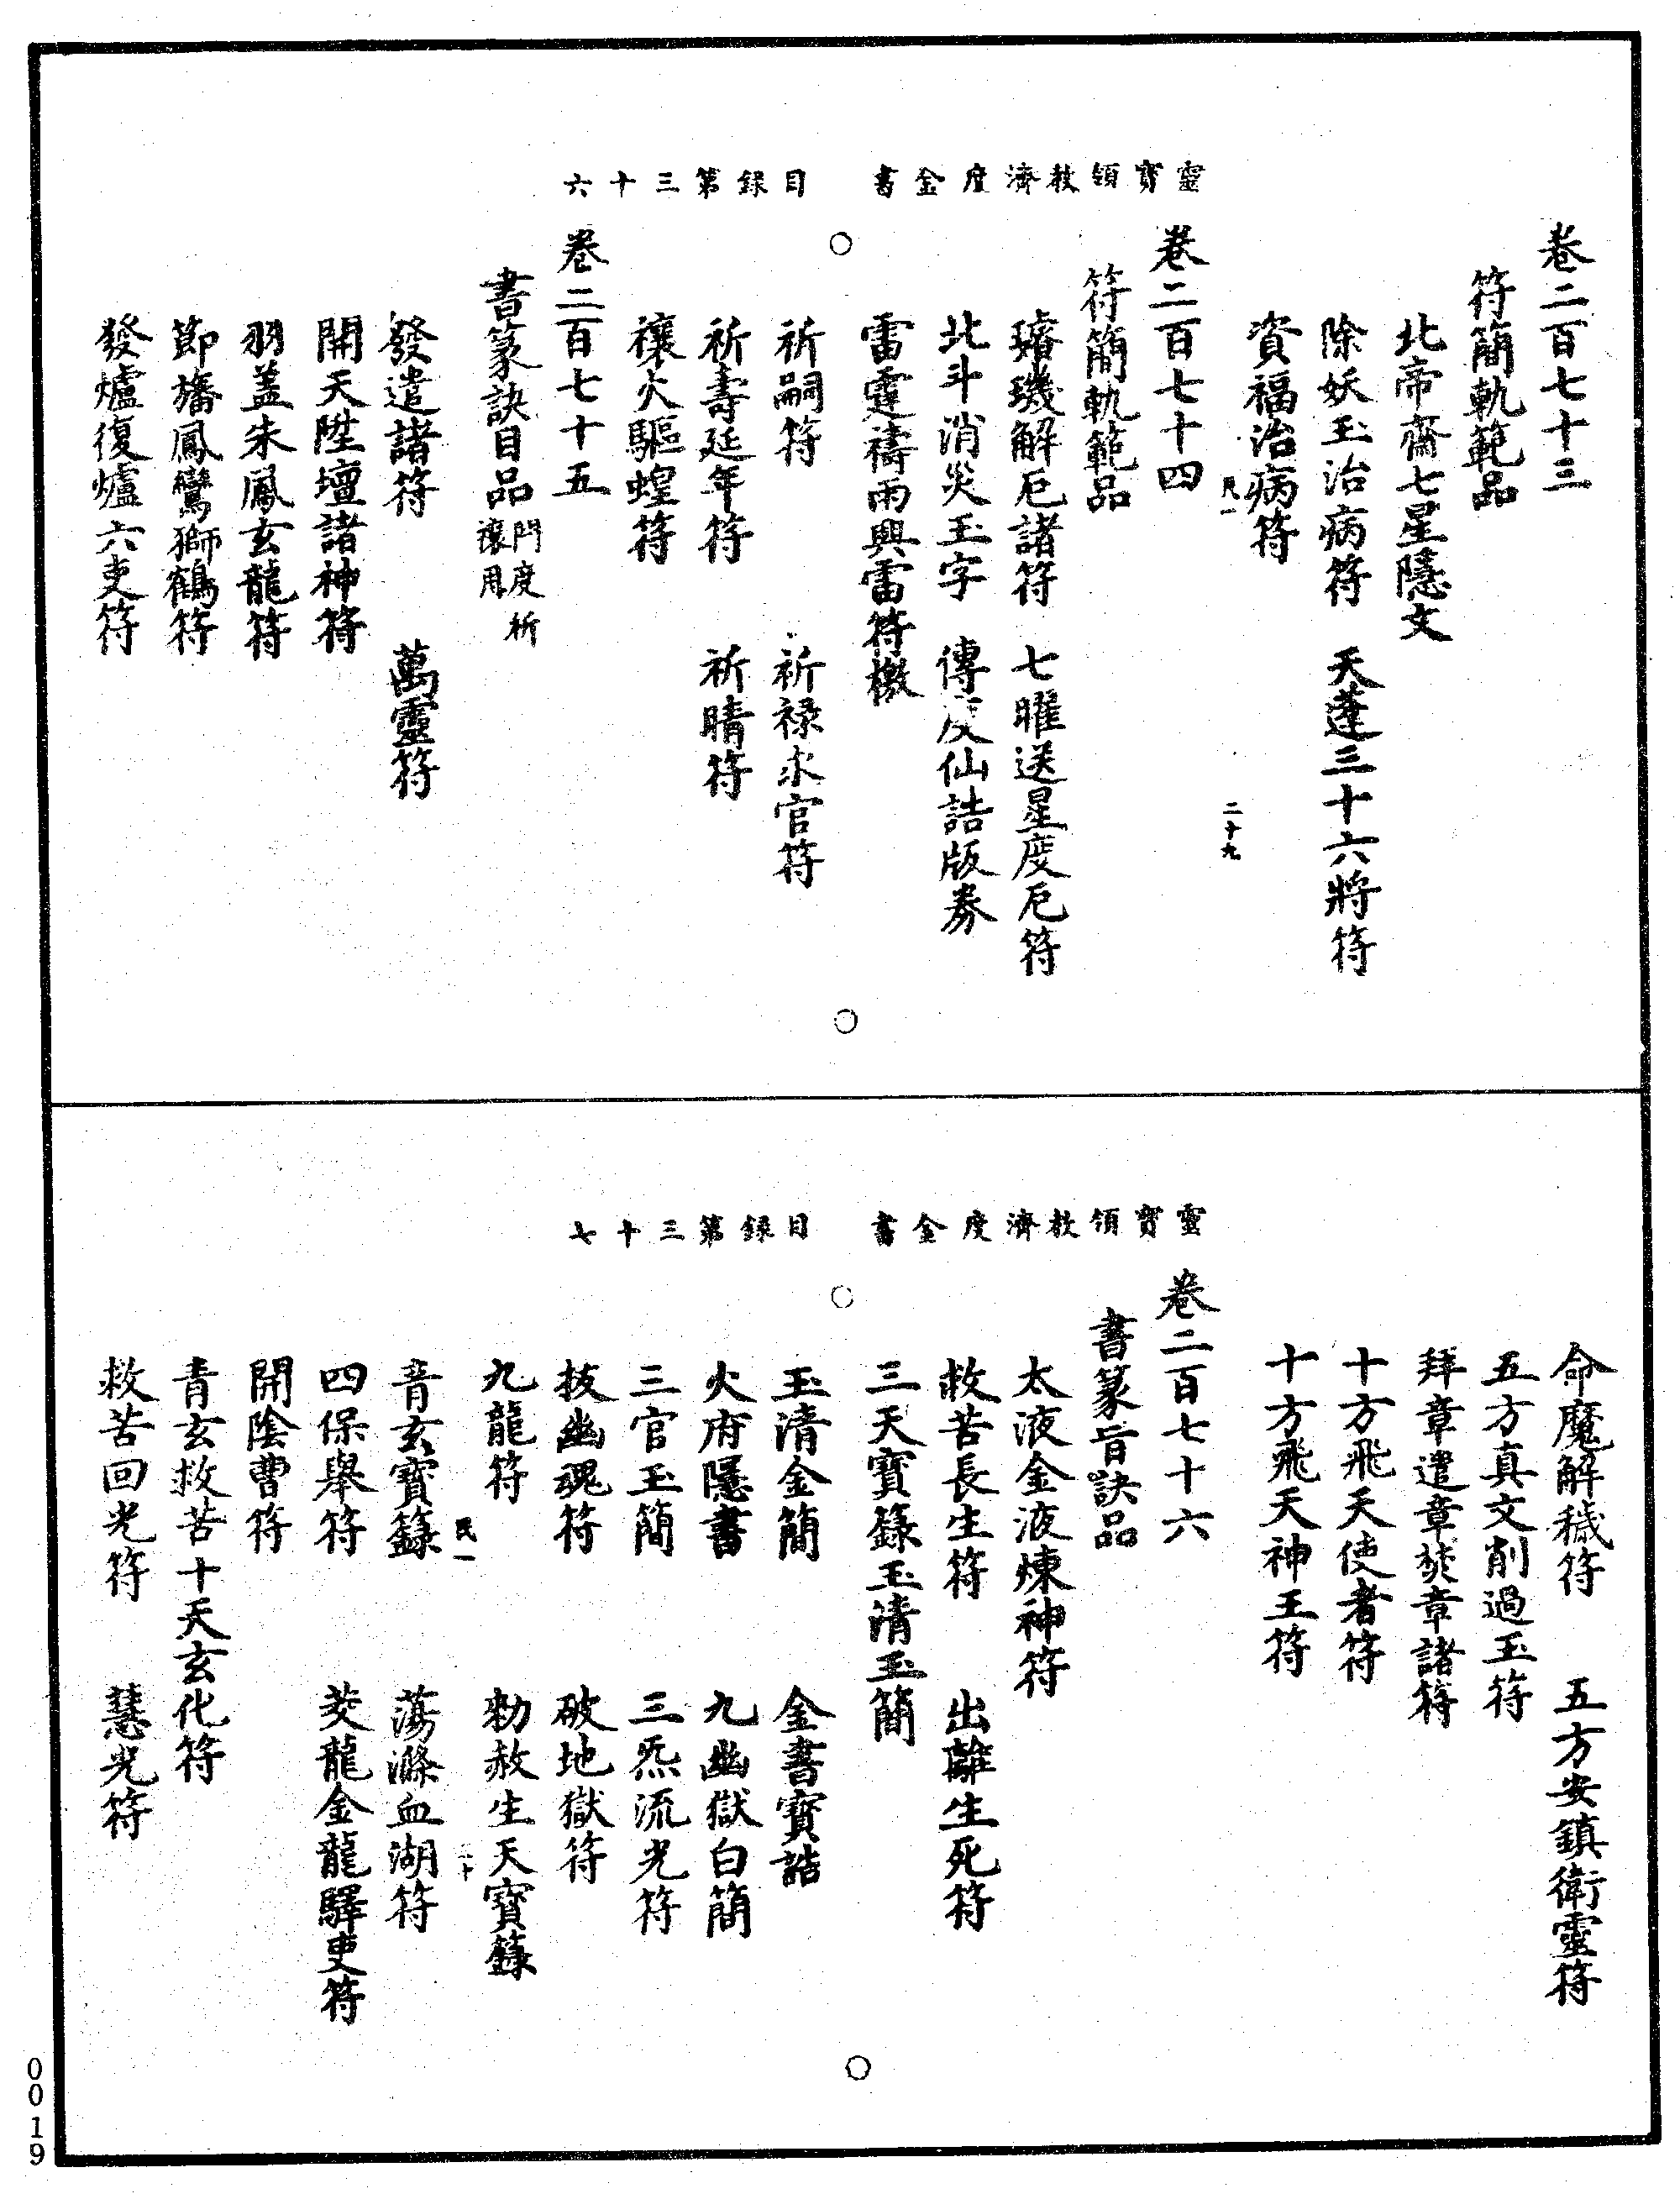 靈寶領教濟度金書　目録第三十六
卷二百七十三
符簡軌範品
北帝齋七星隱文
除妖玉治病符　天蓬三十六將符
資福治病符
民一　二十九
卷二百七十四
符簡軌範品
璿璣解厄諸符　七曜送星度厄符
北斗消災玉字　傳度仙誥版券
雷霆禱雨興雷符檄
祈嗣符　祈禄求官符
祈壽延年符　祈晴符
禳火驅蝗符
卷二百七十五
書篆訣目品開度祈禳用
發遣諸符　萬靈符
開天陞壇諸神符
羽盖朱鳳玄龍符
節旛鳳鸞獅鶴符
發爐復爐六吏符
靈寶領教濟度金書　目録第三十七
命魔解穢符　五方安鎮衛靈符
五方真文削過玉符
拜章遣章焚章諸符
十方飛天使者符
十方飛天神王符
卷二百七十六
書篆旨訣品
太液金液煉神符
救苦長生符　出離生死符
三天寶籙玉清玉簡
玉清金簡　金書寶誥
火府隱書　九幽獄白簡
三官玉簡　三炁流光符
拔幽魂符　破地獄符
九龍符　勑赦生天寶籙
民一　三十
青玄寶籙　蕩滌血湖符
四保舉符　茭龍金龍驛吏符
開陰曹符
青玄救苦十天玄化符
救苦回光符　慧光符
0019